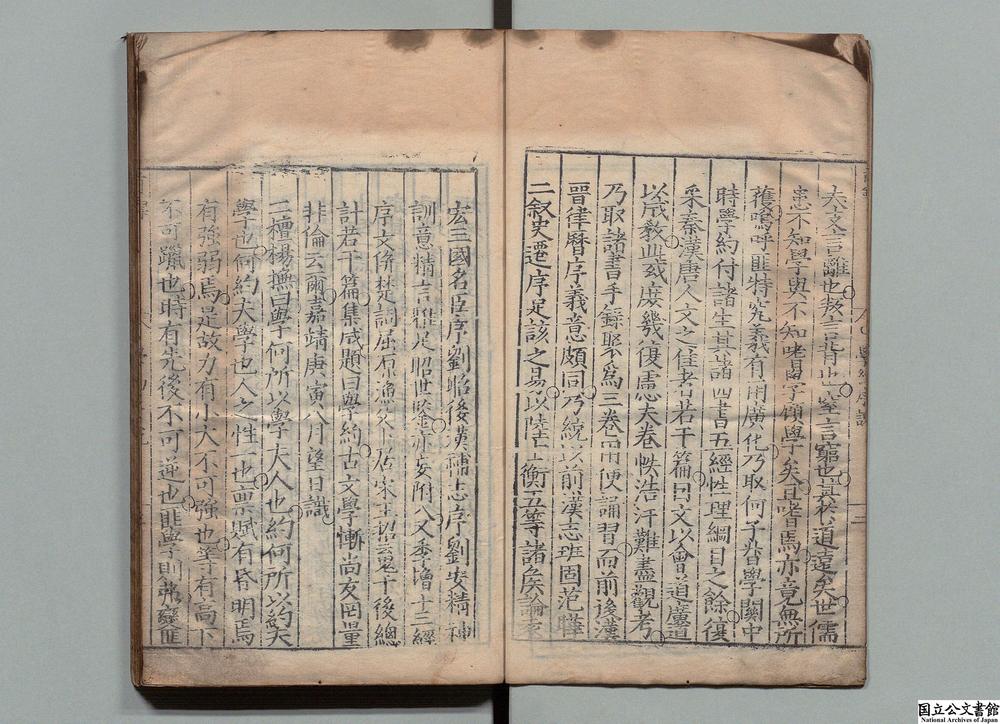 夫文言離也教言背也窒言窮也其於道遠矣世儒
患不知學與不知嗜學領學矣且嗜焉亦竟無所
獲嗚呼匪特究義有用廣化乃取何子昔學關中
時學約付諸生其諸四書五經性理綱目之餘復
采秦漢唐人文之佳者若干篇曰文以會道塵道
以成教此或庶幾復慮夫卷帙浩汗難盡觀考
乃取諸書手錄聚為三卷而便誦習而前後漢
晉律曆序義意頗同乃統以前漢志班固范曄
二叙史遷序足該之易以陸士衡五等諸侯論袁
宏三國名臣序劉昭後漢補志序劉安精神
訓意精言雅足昭世鑒亦妄附入又季增十三經
序文併楚詞屈原漁父卜居宋玉招䰟于後總
計若干篇集成題曰學約古文學慚尚友罔量
非倫云爾嘉靖庚寅八月望日識
三檀楊撫曰學何所以學夫人也約何所以約夫
學也何約夫學也人之性一也稟賦有昏明焉
有強弱焉是故力有小大不可強也等有高下
不可躐也時有先後不可逆也匪學則第躐匪
国立公文書館
National Archives of Japan